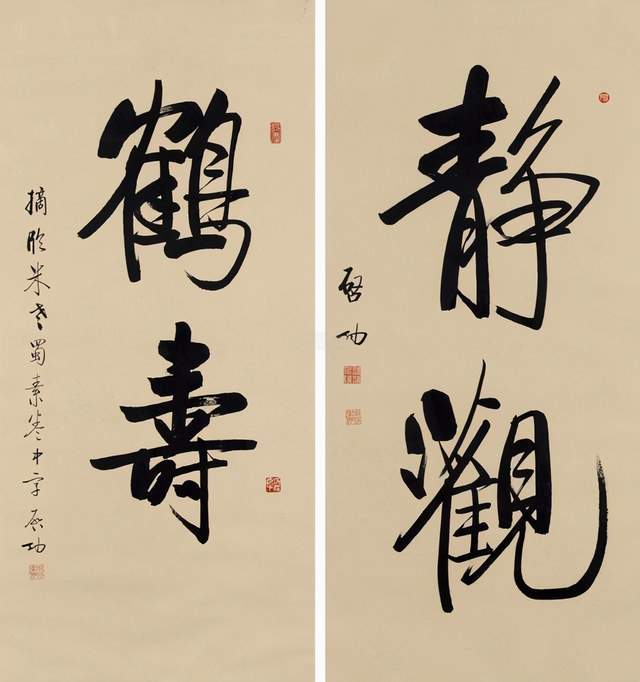 靜觀
啓功
鶴壽
摘臨米老蜀素卷中字 啓功